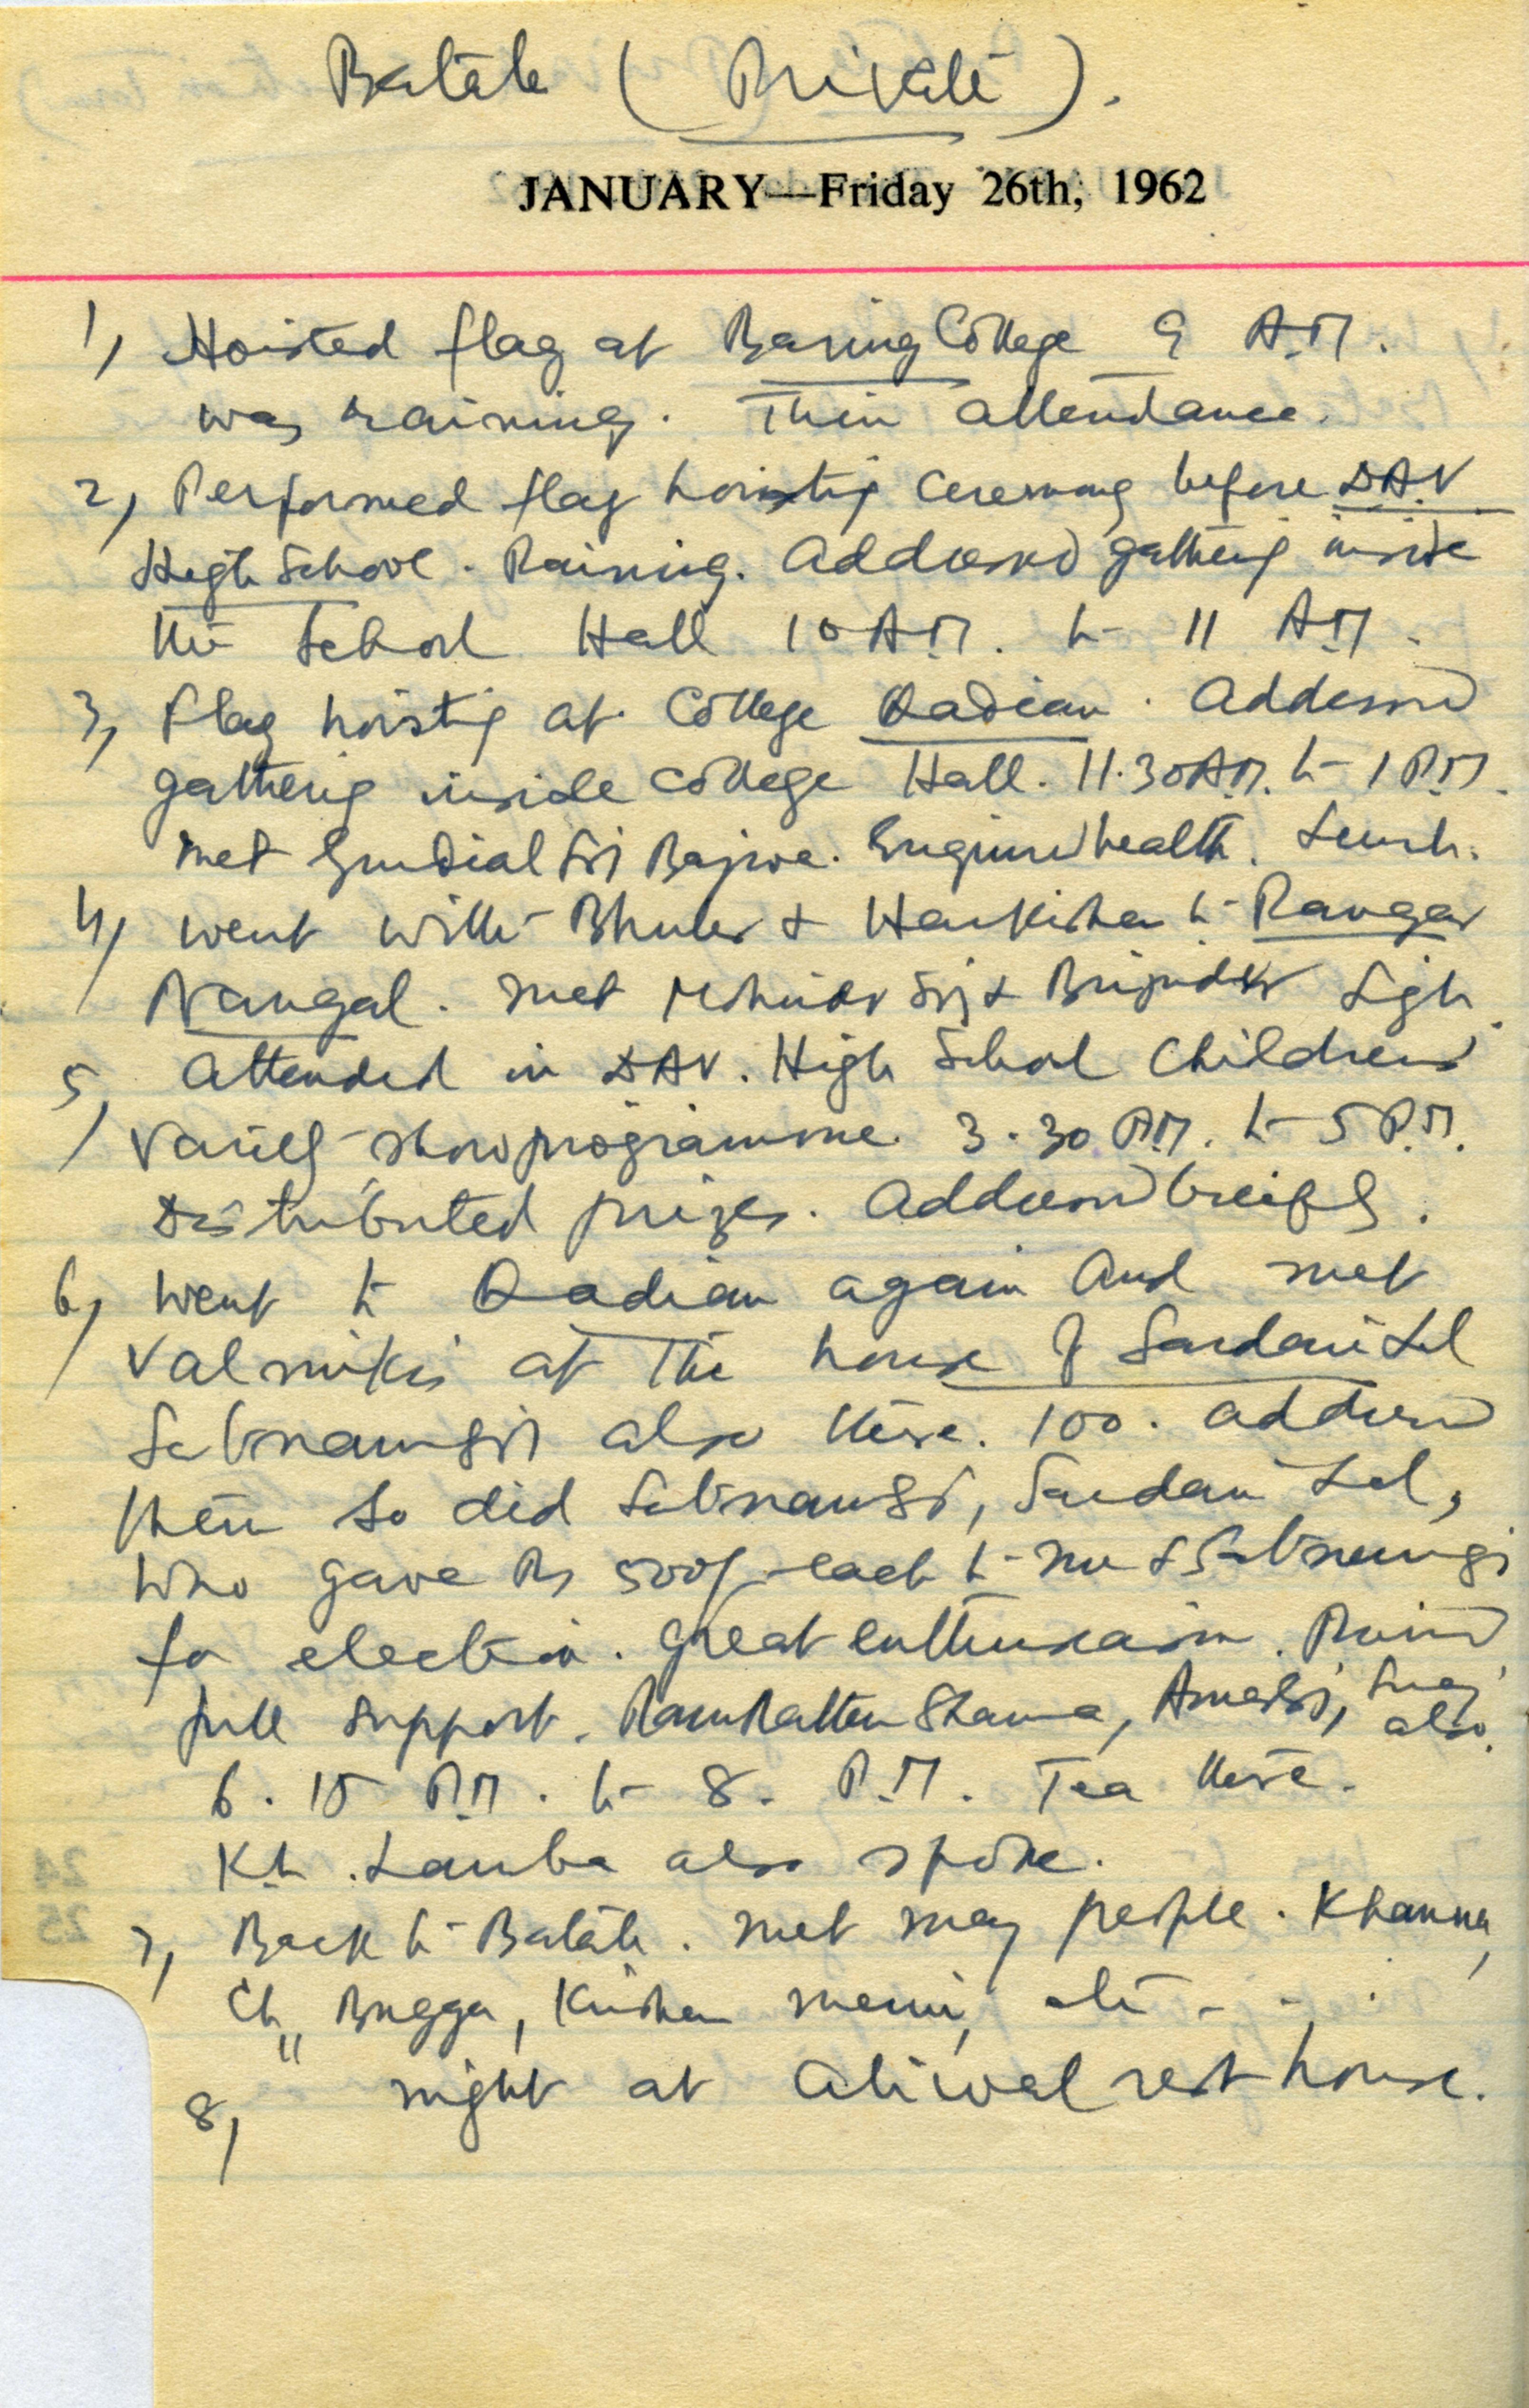 Batala (Private).
JANUARY—Friday 26th, 1962
1, Hoisted flag at Baring College 9 A.M.
was raining. Thin attendance.
2, Performed flag hoisting ceremony before DAV
High School. Raining. Addressed gathering inside
the School Hall 10 A.M. to 11 A.M.
3, Flag hoisting at College Qadian. Addressed
gathering inside College Hall. 11.30 A.M. to 1 P.M.
met Gurdial Sg Bajwa. Enquired health. Lunch.
4, went with Bhuler & Harkishan to Rangar
Nangal. met Mohinder Sg & Brijinder Sigh.
5, attended in DAV. High School Childrens'
variety show programme. 3.30 P.M. to 5 P.M.
Distributed prizes. Addressed breifly.
6, went to Qadian again and met
Valmikis at the house of Sardari Lal
Satnamsg also there. 100. addressed
them so did Satnamsg, Sardari Lal,
who gave Rs 500/- each to me & Satnamsg
for election. Great enthusiasm. Promised
full support. Ram Rattan Sharma, Amarsg, also.
6.15 P.M. to 8. P.M. Tea there.
Kh. Lamba also spoke.
7, Back to Batala. met many people. Khanna,
Ch" Bugga, Krishan etc - - .
8, night at Aliwal rest house.